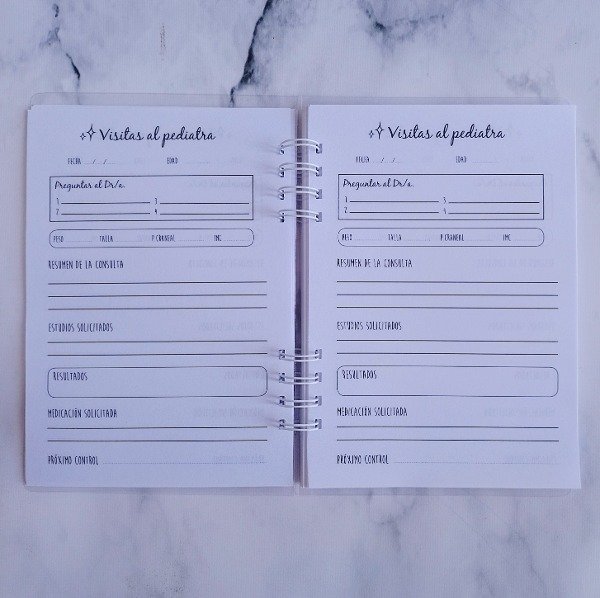 Visitas al pediatra
FECHA / /
EDAD
Preguntar al Dr/a.
1 3
2 4
PESO TALLA P CRANEAL IMC
RESUMEN DE LA CONSULTA
ESTUDIOS SOLICITADOS
RESULTADOS
MEDICACIÓN SOLICITADA
PRÓXIMO CONTROL
Visitas al pediatra
FECHA / /
EDAD
Preguntar al Dr/a.
1 3
2 4
PESO TALLA P CRANEAL IMC
RESUMEN DE LA CONSULTA
ESTUDIOS SOLICITADOS
RESULTADOS
MEDICACIÓN SOLICITADA
PRÓXIMO CONTROL